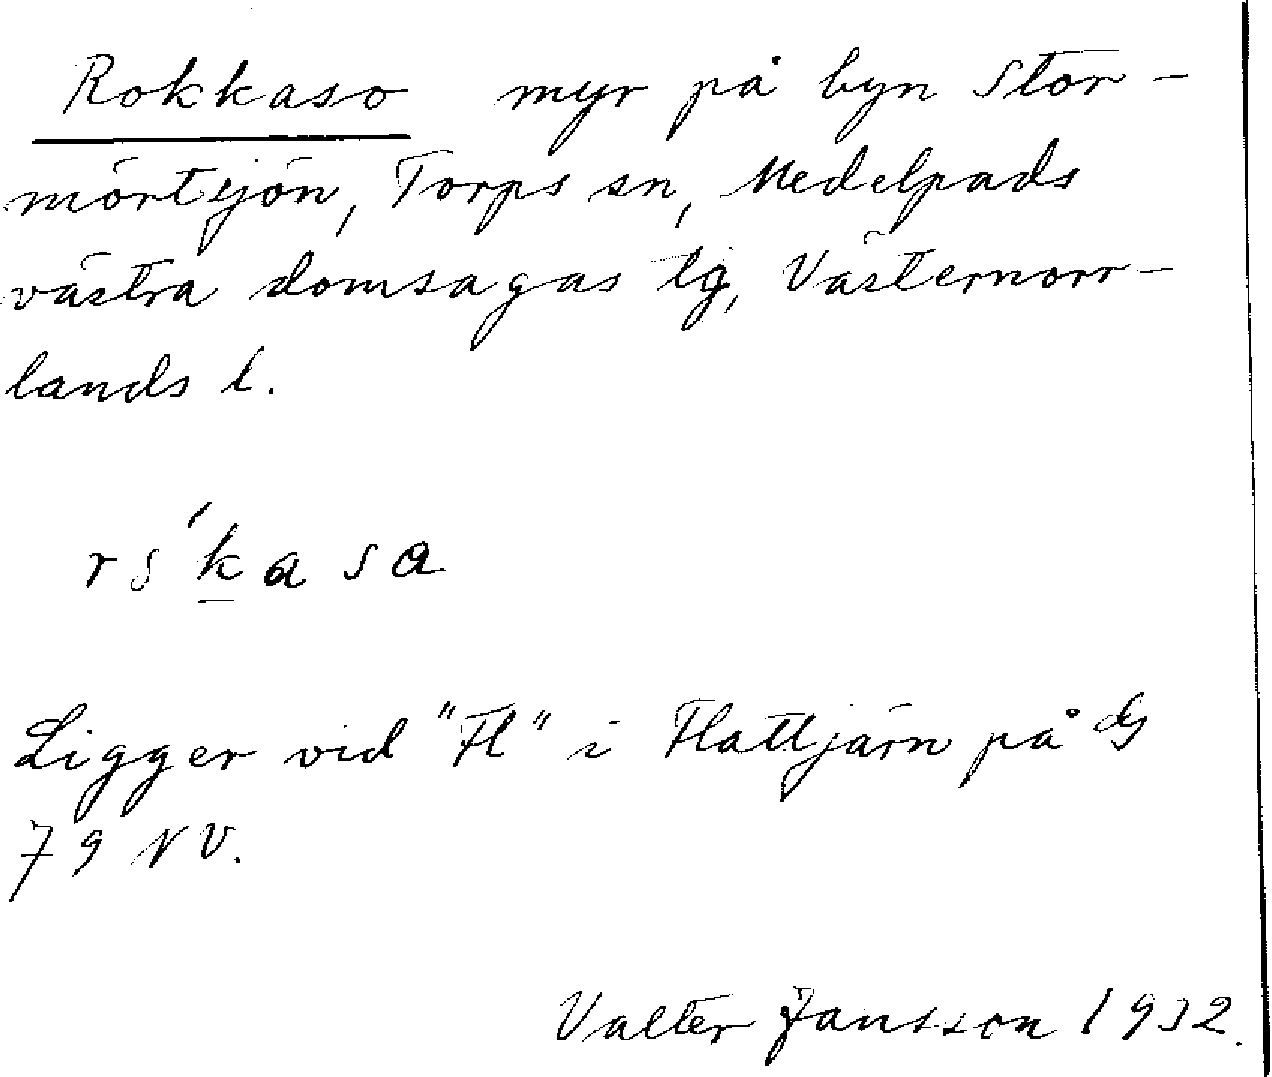 Rokkaso myr på byn Stor-
mörtsjön, Torps sn, Medelpads
västra domsagas tg, Västernorr-
lands l.
Ligger vid "Fl" i Flattjärn på dG
79 NV.
Valter Jansson 1932.